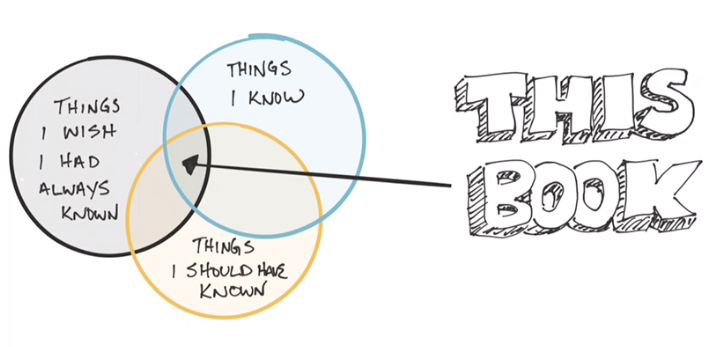 THINGS
I WISH
I HAD
ALWAYS
KNOWN
THINGS
I KNOW
THINGS
I SHOULD HAVE
KNOWN
THIS
BOOK